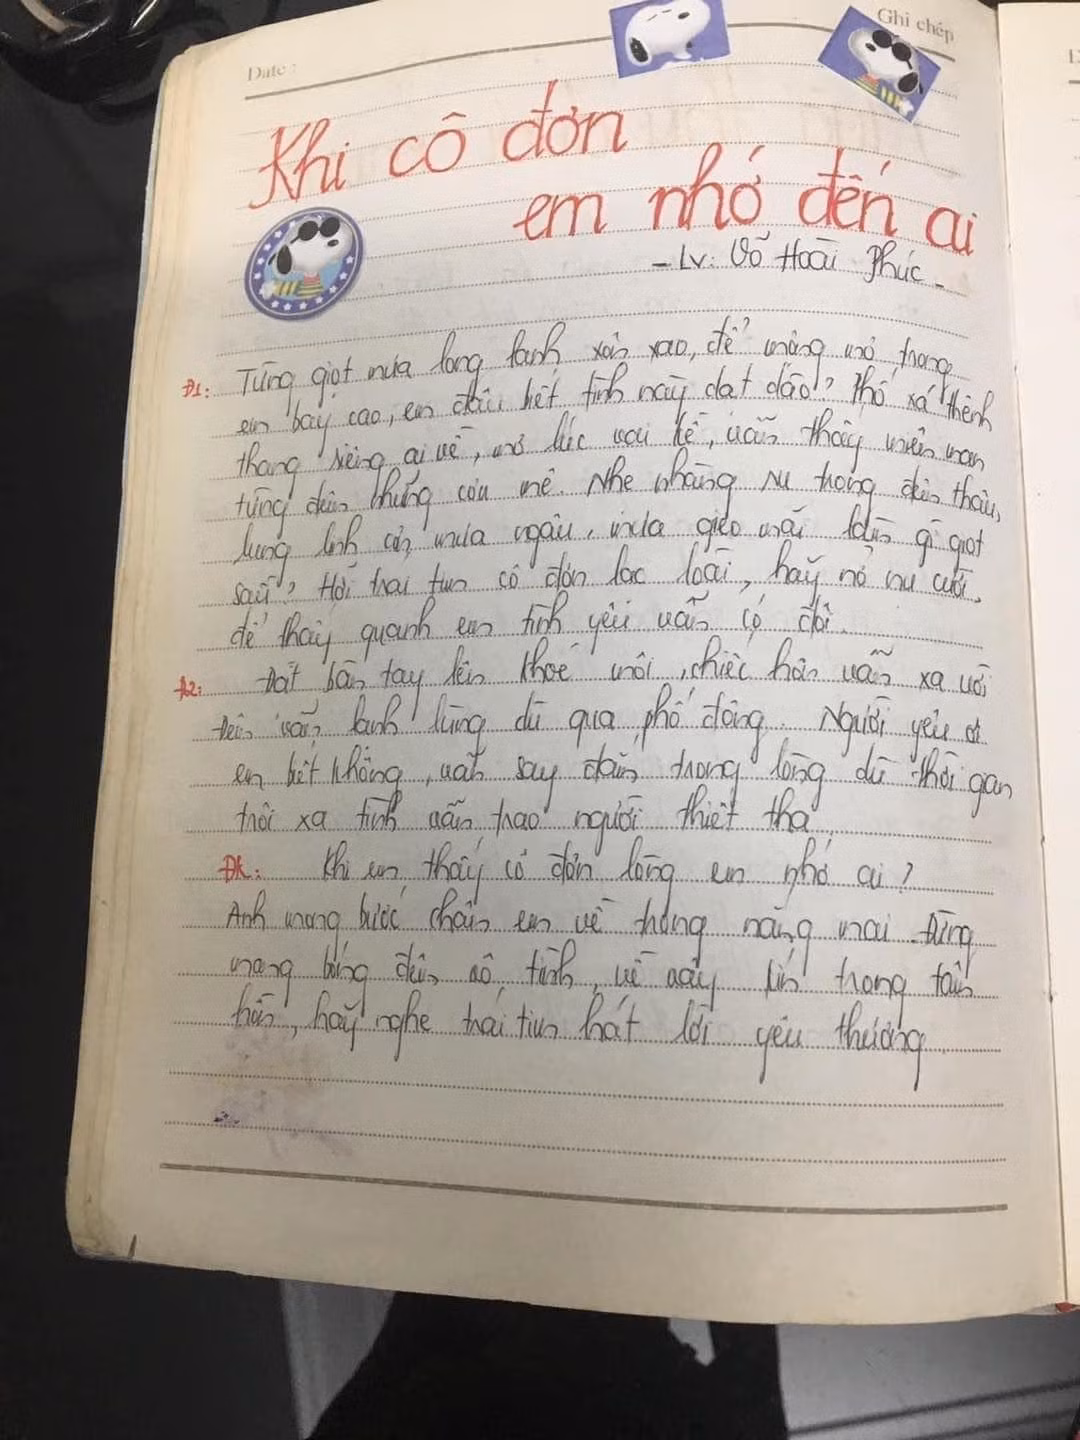 Date :
Ghi chép
Khi cô đơn
em nhớ đến ai
- Lv: Võ Hoài Phúc -
Đ1: Từng giọt mưa long lanh xôn xao, để mộng mơ trong
em bay cao, em đâu biết tình này dạt dào? Phố xá thênh
thang riêng ai về, mơ lúc vai kề, vẫn thấy miên man
từng đêm những cơn mê. Nhẹ nhàng ru trong đêm thâu,
lung linh cơn mưa ngâu, mưa gieo mãi gì giọt
sầu? Hỡi trai tim cô đơn lạc loài, hãy nở nụ cười,
để thấy quanh em tình yêu vẫn có đôi.
Đ2: Đặt bàn tay lên khoé môi, chiếc hôn vẫn xa vời
Đêm vẫn lạnh lùng dù qua phố đông. Người yêu ơi
em biết không, vẫn say đắm trong lòng dù thời gian
trôi xa tình vẫn trao người thiết tha
ĐK: Khi em thấy cô đơn lòng em nhớ ai?
Anh mong bước chân em về trong nắng mai. Đừng
mang bóng đêm vô tình, về vây kín trong tâm
hồn, hãy nghe trái tim hát lời yêu thương